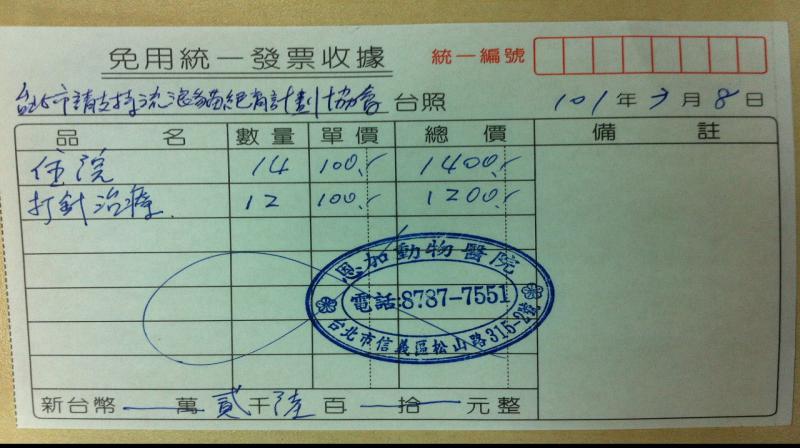 免用統一發票收據 統一編號
台北市請支持流浪貓絕育計劃協會 台照 101年3月8日
品名 數量 單價 總價 備註
住院 14 100.- 1400.-
打針治療. 12 100.- 1200.-
恩加動物醫院
電話:8787-7551
台北市信義區松山路315-2號
新台幣 — 萬 貳 千 陸 百 — 拾 — 元整